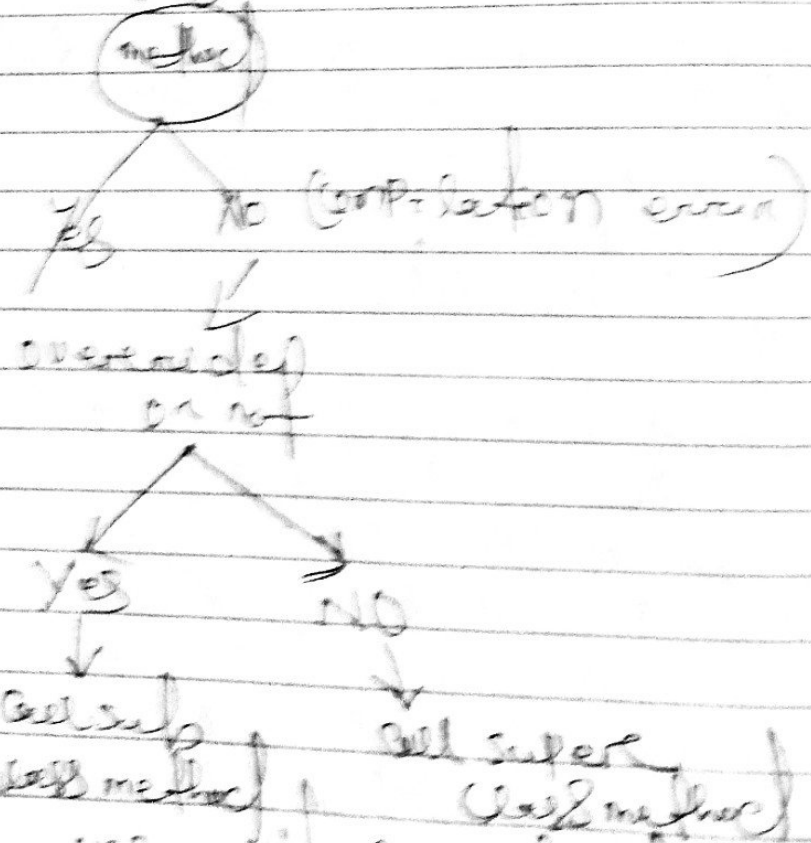 method
Yes No (compilation error)
overrided
or not
Yes
NO
Call sub Call super
class method class method